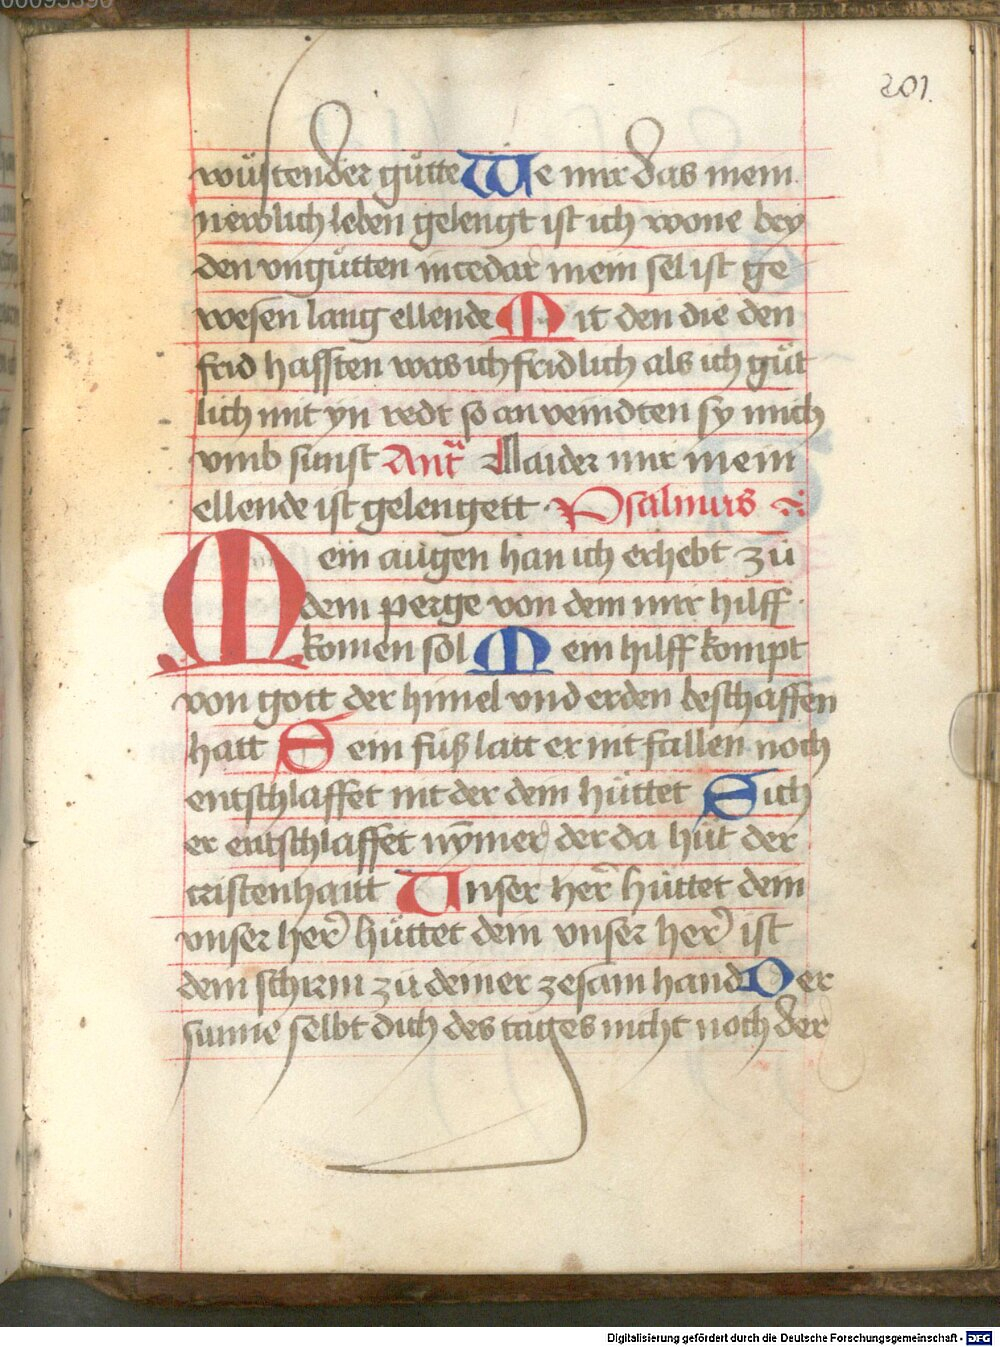 201.
wüstender gütte We mir das mein
newlich leben gelengt ist ich wone bey
den vngütten in cedar mein sel ist ge
wesen lang ellende Mit den die den
frid hassten was ich fridlich als ich güt
lich mit yn redt so an veindten sy mich
vmb sunst Ant Laider mir mein
ellende ist gelengett · Psalmus
Mein augen han ich erhebt zů
dem perge von dem mir hilff ·
komen sol Mein hilff kompt
von gott der himel vnd erden beschaffen
hatt Dein fůß latt er nit fallen noch
entschlaffet nit der dein hüttet Sich
er entschlaffet nÿmer der da hüt der
cristenhaitt Unser her hüttet dem
vnser her hüttet dein vnser her ist
dem schirm zů deiner zesam hand Der
sunne selbt dich des tages nicht noch der
Digitalisierung gefördert durch die Deutsche Forschungsgemeinschaft - DFG